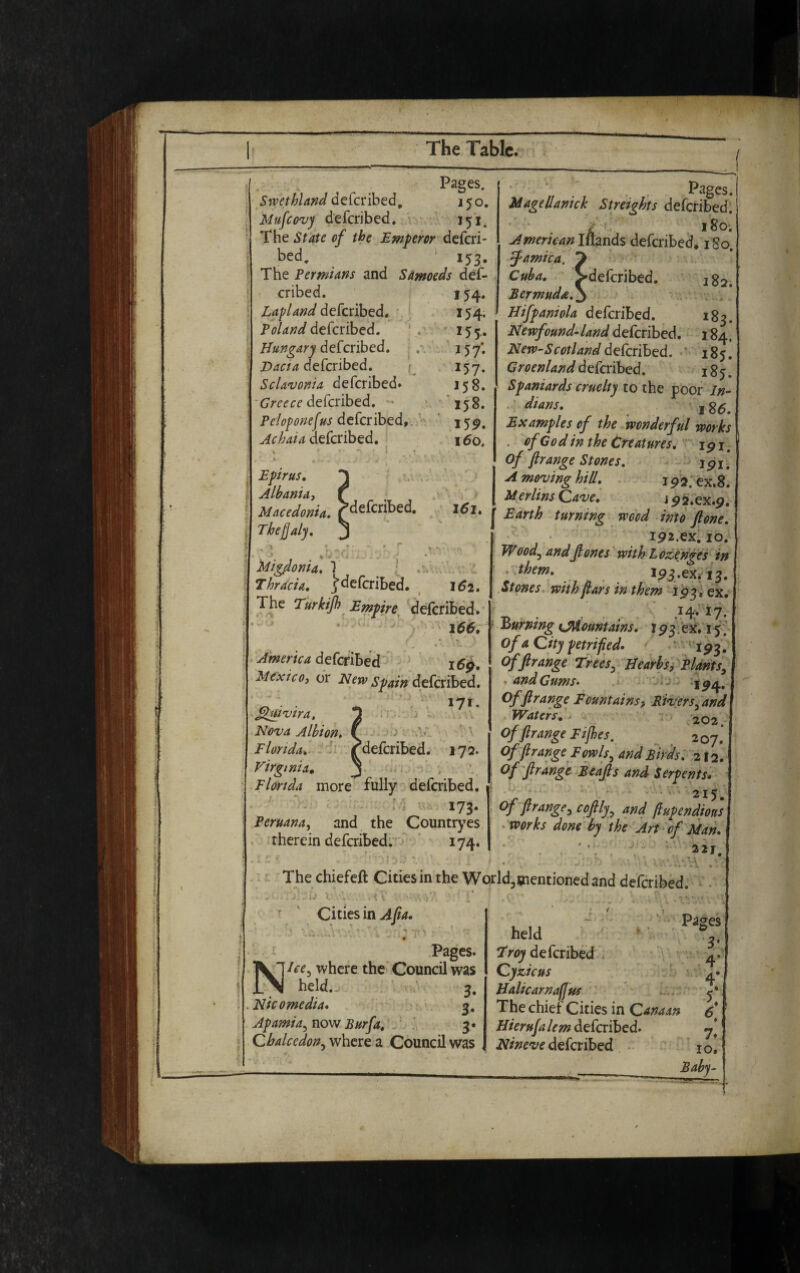 The Table.
Pages.
Swethland deſcribed. 150.
Muſcovy deſcribed. 151.
The State of the Emperor deſcri-
bed. 153.
The Permians and Samoeds deſ-
cribed. 154.
Lapland deſcribed. 154.
Poland deſcribed. 155.
Hungary deſcribed. 157.
Dacia deſcribed. 157.
Sclavonia deſcribed. 158.
Greece deſcribed. 158.
Peloponeſus deſcribed. 159.
Achaia deſcribed. 160.
Epirus.
Albania,
Macedonia. } deſcribed. 161.
Theſſaly.
Migdonia. }
Thracia. } deſcribed. 162.
The Turkiſh Empire deſcribed.
166.
America deſcribed 169.
Mexico, or New Spain deſcribed.
171.
Quivira,
Nova Albion.
Florida. } deſcribed. 172.
Virginia.
Florida more fully deſcribed.
173.
Peruana, and the Countryes
therein deſcribed. 174.
Pages.
Magellanick Streights deſcribed.
180.
American Iſlands deſcribed. 180.
Jamica.
Cuba. } deſcribed. 182.
Bermuda.
Hiſpaniola deſcribed. 183.
Newfound-land deſcribed. 184.
New-Scotland deſcribed. 185.
Groenland deſcribed. 185.
Spaniards cruelty to the poor In-
dians. 186.
Examples of the wonderful works
of God in the Creatures. 191.
Of ſtrange Stones. 191.
A moving hill. 192. ex.8.
Merlins Cave. 192.ex.9.
Earth turning wood into ſtone.
192.ex. 10.
Wood, and ſtones with Lozenges in
them. 193.ex. 13.
Stones with ſtars in them 193. ex.
14. 17.
Burning Mountains. 193 ex. 15.
Of a City petrified. 193.
Of ſtrange Trees, Hearbs, Plants,
and Gums. 194.
Of ſtrange Fountains, Rivers, and
Waters. 202.
Of ſtrange Fiſhes. 207.
Of ſtrange Fowls, and Birds. 212.
Of ſtrange Beaſts and Serpents.
215.
Of ſtrange, coſtly, and ſtupendious
works done by the Art of Man.
221.
The chiefeſt Cities in the World, mentioned and deſcribed.
Cities in Aſia.
Pages.
NIce, where the Council was
held. 3.
Nicomedia. 3.
Apamia, now Burſa. 3.
Chalcedon, where a Council was
Pages
held 3.
Troy deſcribed 4.
Cyzicus 4.
Halicarnaſſus 5.
The chief Cities in Canaan 6.
Hieruſalem deſcribed. 7.
Nineve deſcribed 10.
Baby-